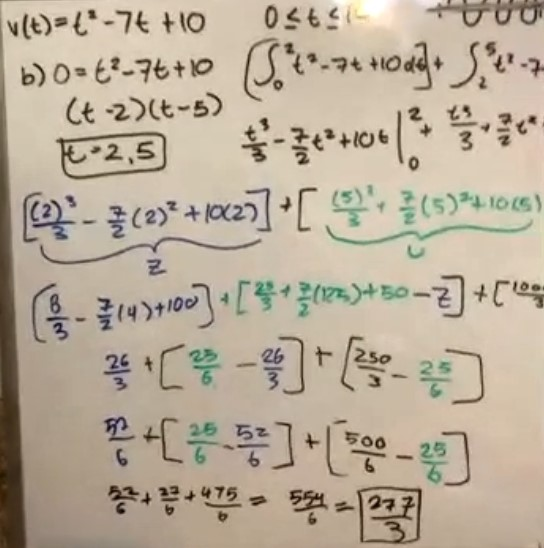 v(t)=t²-7t+10   0≤t≤1
b) 0=t²-7t+10   [∫₀² t²-7t+10dt]+ ∫₂⁵ t²-7
(t-2)(t-5)
t=2,5   t³/3 - 7/2 t²+10t |₀² + t³/3 + 7/2 t²
[(2)³/3 - 7/2 (2)² +10(2)] + [ (5)³/3 + 7/2 (5)²+10(5)
z
[8/3 - 7/2 (4)+100] + [25/3 + 7/2 (125)+50 -z] + [100
26/3 + [25/6 - 26/3] + [250/3 - 25/6]
52/6 + [25/6 - 52/6] + [500/6 - 25/6]
52/6 + 27/6 + 475/6 = 554/6 = 277/3